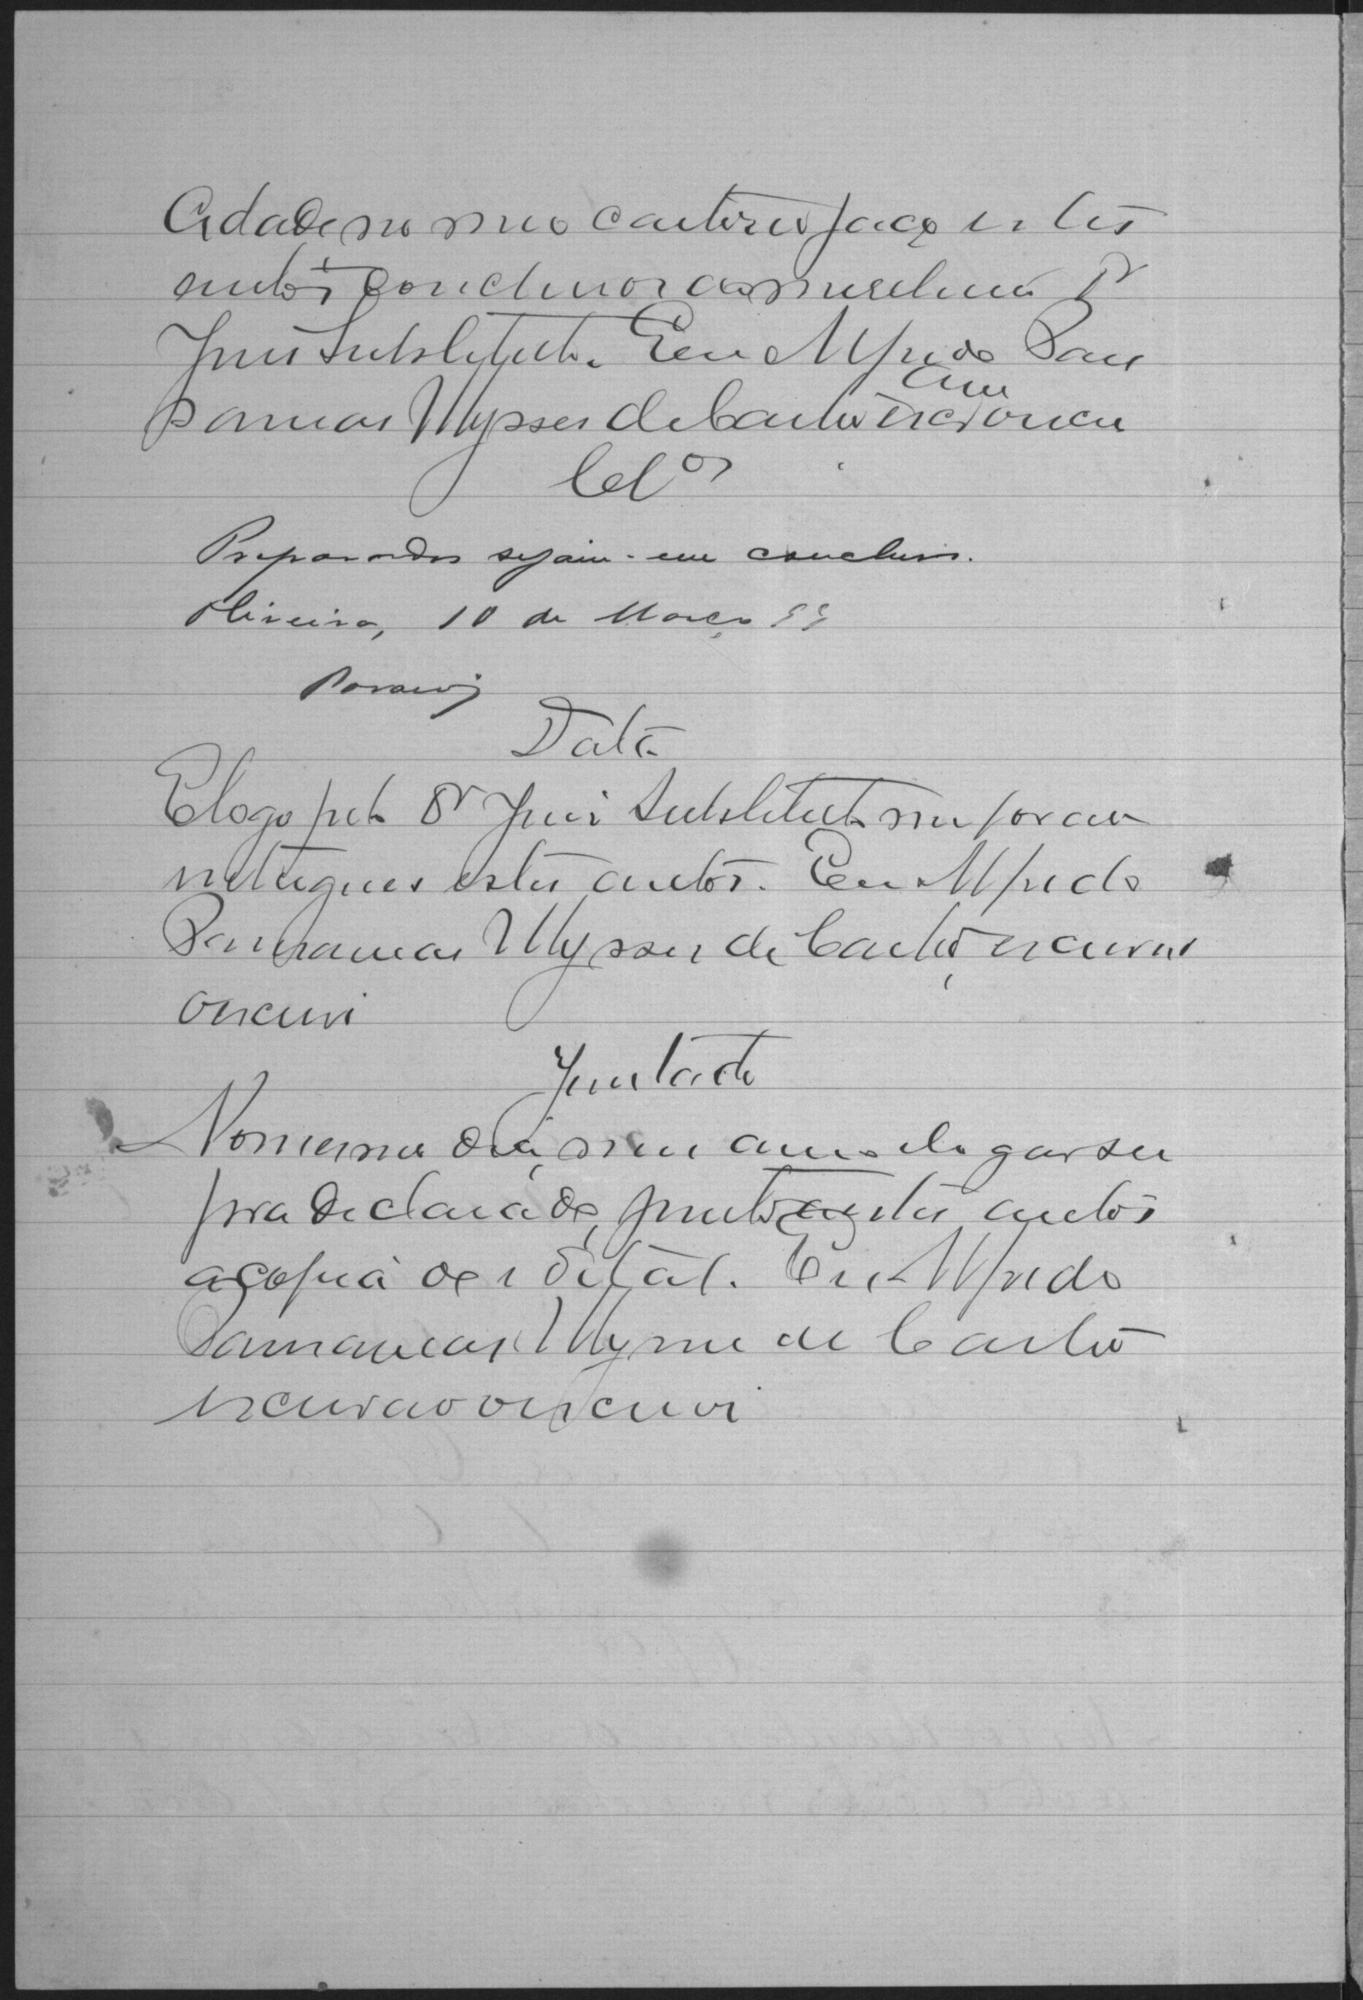 Cidade, no meo cartorio faço estes
autos conclusos ao meritissimo Dr
Juis Substituto. Eu Alfredo Par
anamas Ulysses de Castro escrivão escrevi
Clos
Preparados sejam-me conclusos.
Oliveira, 10 de Março 99
Data
E logo pelo Dr Juis Substituto me foram
entregues estes autos. Eu Alfredo
Ulysses de Castro, escrivão
o escrevi
Juntada
No mesmo dia, mes anno e logar su
pra declarado, junto a estes autos
a copia do edital. Eu Alfredo
Ulysses de Castro
escrivão o escrevi